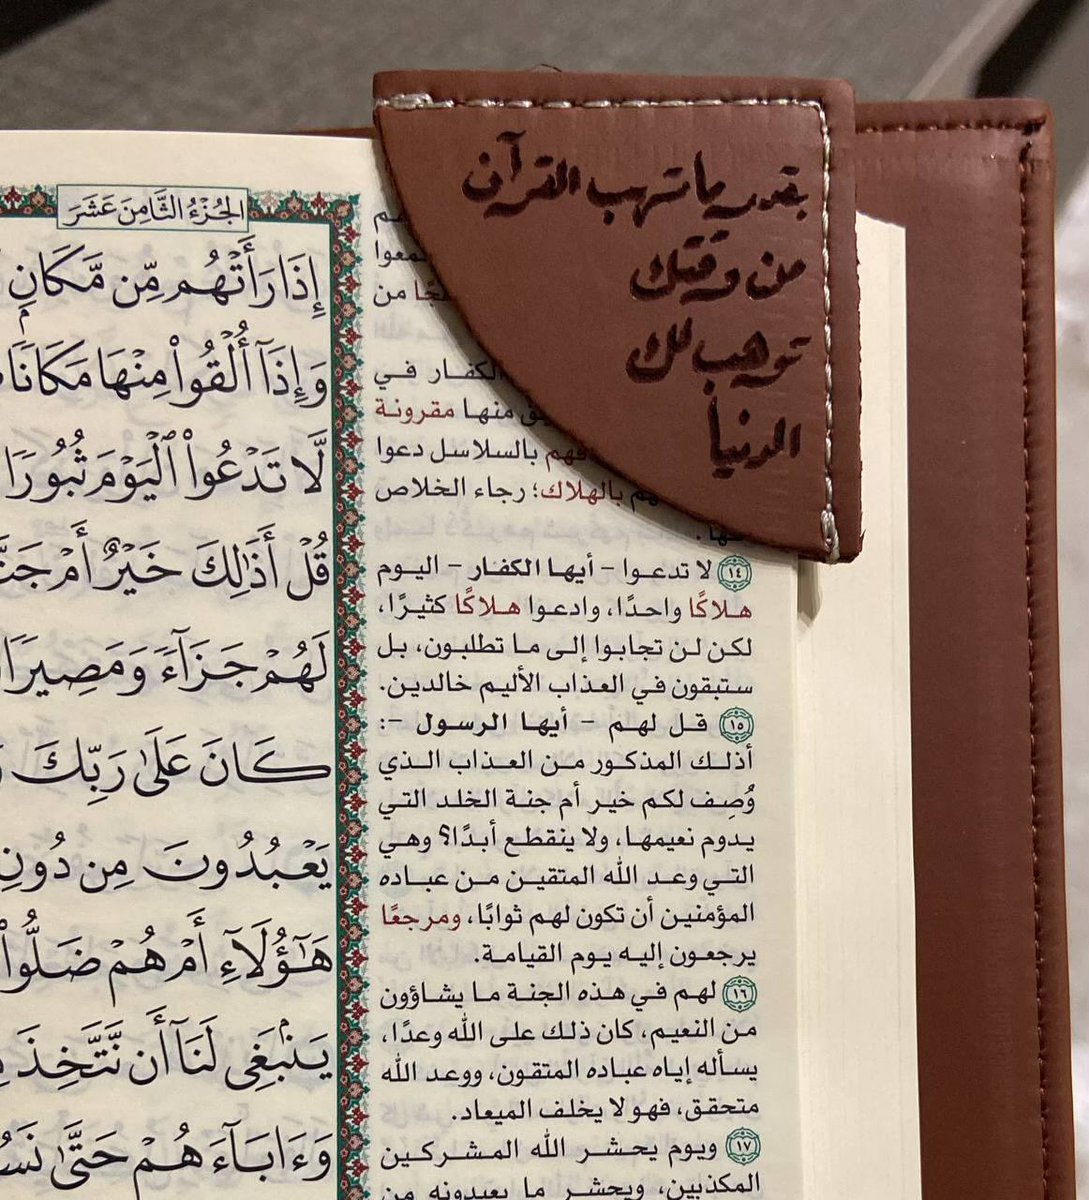 بقدر ما تهب القرآن
من وقتك
توهب لك
الدنيا
الجُزْءُ الثَّامِنَ عَشَرَ
إِذَا رَأَتْهُم مِّن مَّكَانٍ
وَإِذَآ أُلْقُوا۟ مِنْهَا مَكَانًا
لَّا تَدْعُوا۟ ٱلْيَوْمَ ثُبُورًا
قُلْ أَذَٰلِكَ خَيْرٌ أَمْ جَنَّ
لَهُمْ جَزَآءً وَمَصِيرًا
كَانَ عَلَىٰ رَبِّكَ
يَعْبُدُونَ مِن دُونِ
هَٰٓؤُلَآءِ أَمْ هُمْ ضَلُّوا۟
يَنۢبَغِى لَنَآ أَن نَّتَّخِذَ
وَءَابَآءَهُمْ حَتَّىٰ نَسُ
من
الكفار في
منها مقرونة
بالسلاسل دعوا
بالهلاك؛ رجاء الخلاص
١٤ لا تدعوا - أيها الكفار - اليوم
هلاكًا واحدًا، وادعوا هلاكًا كثيرًا،
لكن لن تجابوا إلى ما تطلبون، بل
ستبقون في العذاب الأليم خالدين.
١٥ قل لهم - أيها الرسول -:
أذلك المذكور من العذاب الذي
وُصِف لكم خير أم جنة الخلد التي
يدوم نعيمها، ولا ينقطع أبدًا؟ وهي
التي وعد الله المتقين من عباده
المؤمنين أن تكون لهم ثوابًا، ومرجعًا
يرجعون إليه يوم القيامة.
١٦ لهم في هذه الجنة ما يشاؤون
من النعيم، كان ذلك على الله وعدًا،
يسأله إياه عباده المتقون، ووعد الله
متحقق، فهو لا يخلف الميعاد.
١٧ ويوم يحشر الله المشركين
المكذبين، ويحشر ما يعبدونه من